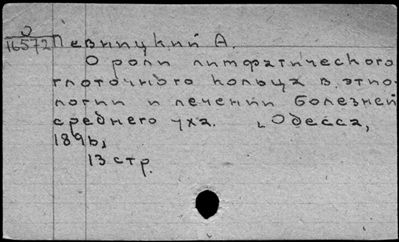 О
16572
Левицкий А.
О роли лимфатического
глоточного кольца в этио-
логии и лечении болезней
среднего уха. Одесса,
1896,
13 стр.